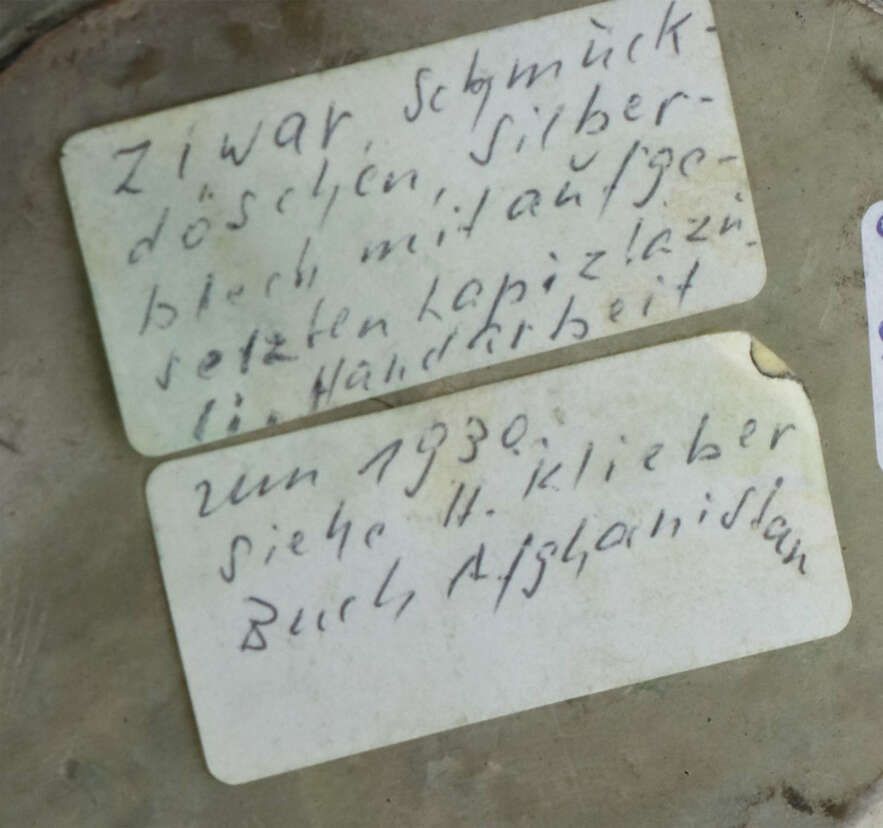 Ziwar, Schmück-
döschen, Silber-
blech mit aufge-
setzten Lapizlazu-
li. Handarbeit
um 1930.
siehe H. Klieber
Buch Afghanistan